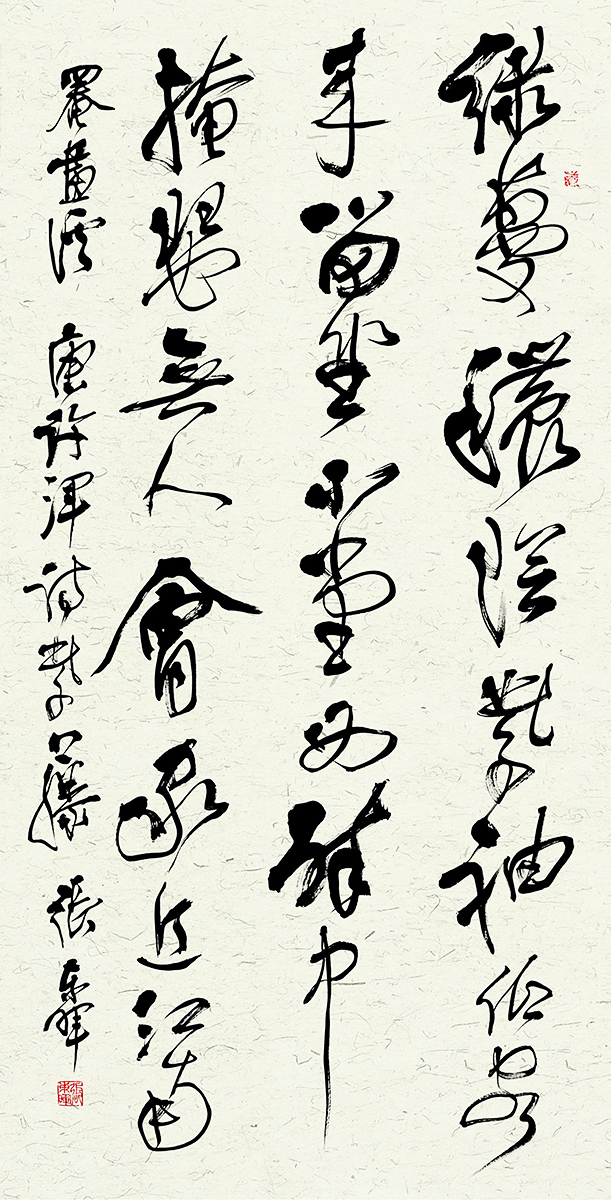 緑蔓穠陰紫袖低客
来留坐小堂西醉中
掩瑟無人會家近江南
罨畫溪 唐許渾詩紫藤 張東